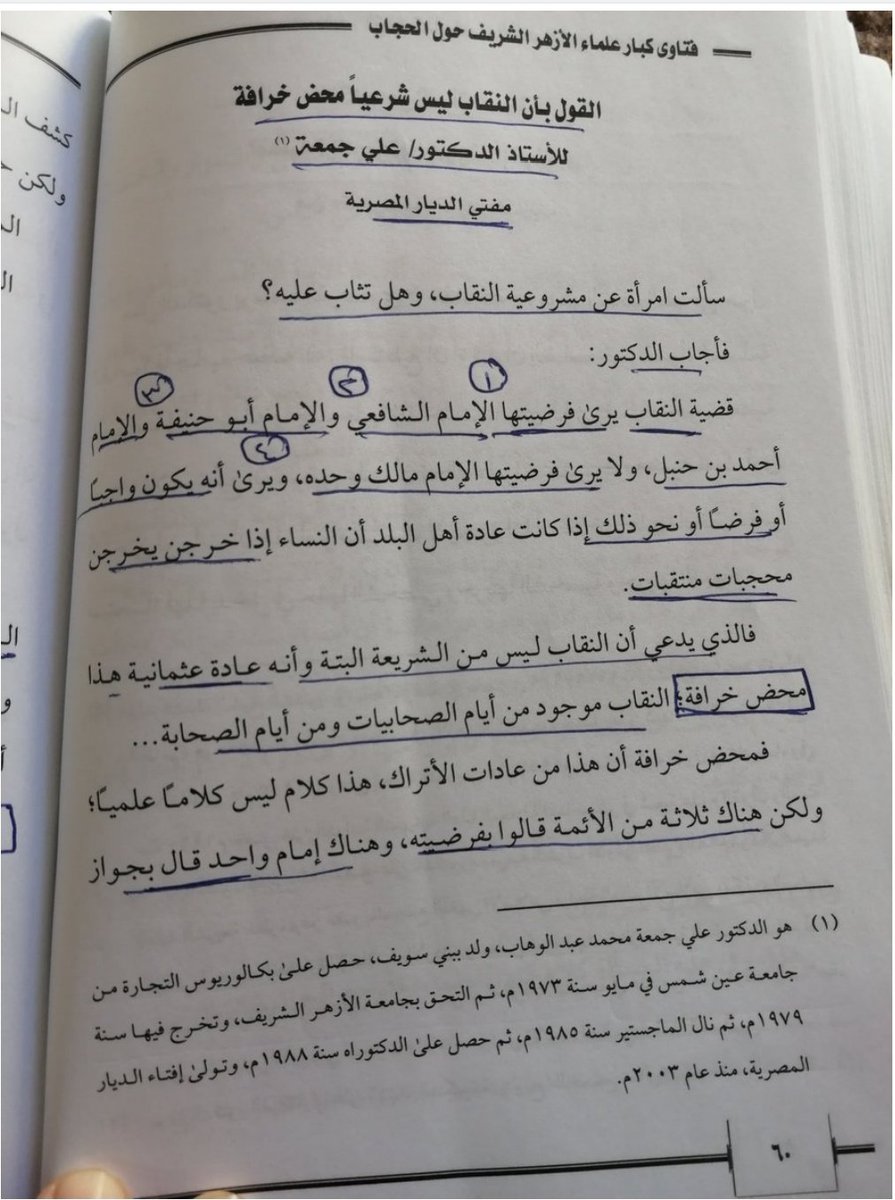 فتاوى كبار علماء الأزهر الشريف حول الحجاب
القول بأن النقاب ليس شرعياً محض خرافة
للأستاذ الدكتور/ علي جمعة (١)
مفتي الديار المصرية
سألت امرأة عن مشروعية النقاب، وهل تثاب عليه؟
فأجاب الدكتور:
١ ٢ ٣
قضية النقاب يرى فرضيتها الإمام الشافعي والإمام أبو حنيفة والإمام
أحمد بن حنبل، ولا يرى فرضيتها الإمام مالك وحده، ويرى أنه يكون واجبًا
أو فرضًا أو نحو ذلك إذا كانت عادة أهل البلد أن النساء إذا خرجن يخرجن
محجبات منتقبات.
فالذي يدعي أن النقاب ليس من الشريعة البتة وأنه عادة عثمانية هذا
محض خرافة؛ النقاب موجود من أيام الصحابيات ومن أيام الصحابة...
فمحض خرافة أن هذا من عادات الأتراك، هذا كلام ليس كلامًا علميًا؛
ولكن هناك ثلاثة من الأئمة قالوا بفرضيته، وهناك إمام واحد قال بجواز
(١) هو الدكتور علي جمعة محمد عبد الوهاب، ولد ببني سويف، حصل على بكالوريوس التجارة من
جامعة عين شمس في مايو سنة ١٩٧٣م، ثم التحق بجامعة الأزهر الشريف، وتخرج فيها سنة
١٩٧٩م، ثم نال الماجستير سنة ١٩٨٥م، ثم حصل على الدكتوراه سنة ١٩٨٨م، وتولى إفتاء الديار
المصرية، منذ عام ٢٠٠٣م.
٦٠
كشف
ولكن